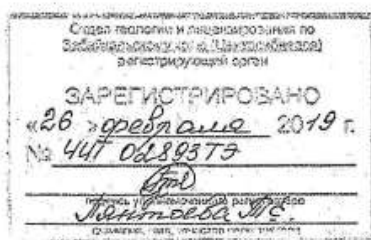 Отдел геологии и лицензирования по
Забайкальскому краю (Центрсибнедра)
регистрирующий орган
ЗАРЕГИСТРИРОВАНО
«26 » февраля 2019 г.
№ ЧИТ 02893ТЭ
подпись уполномоченного регистратора